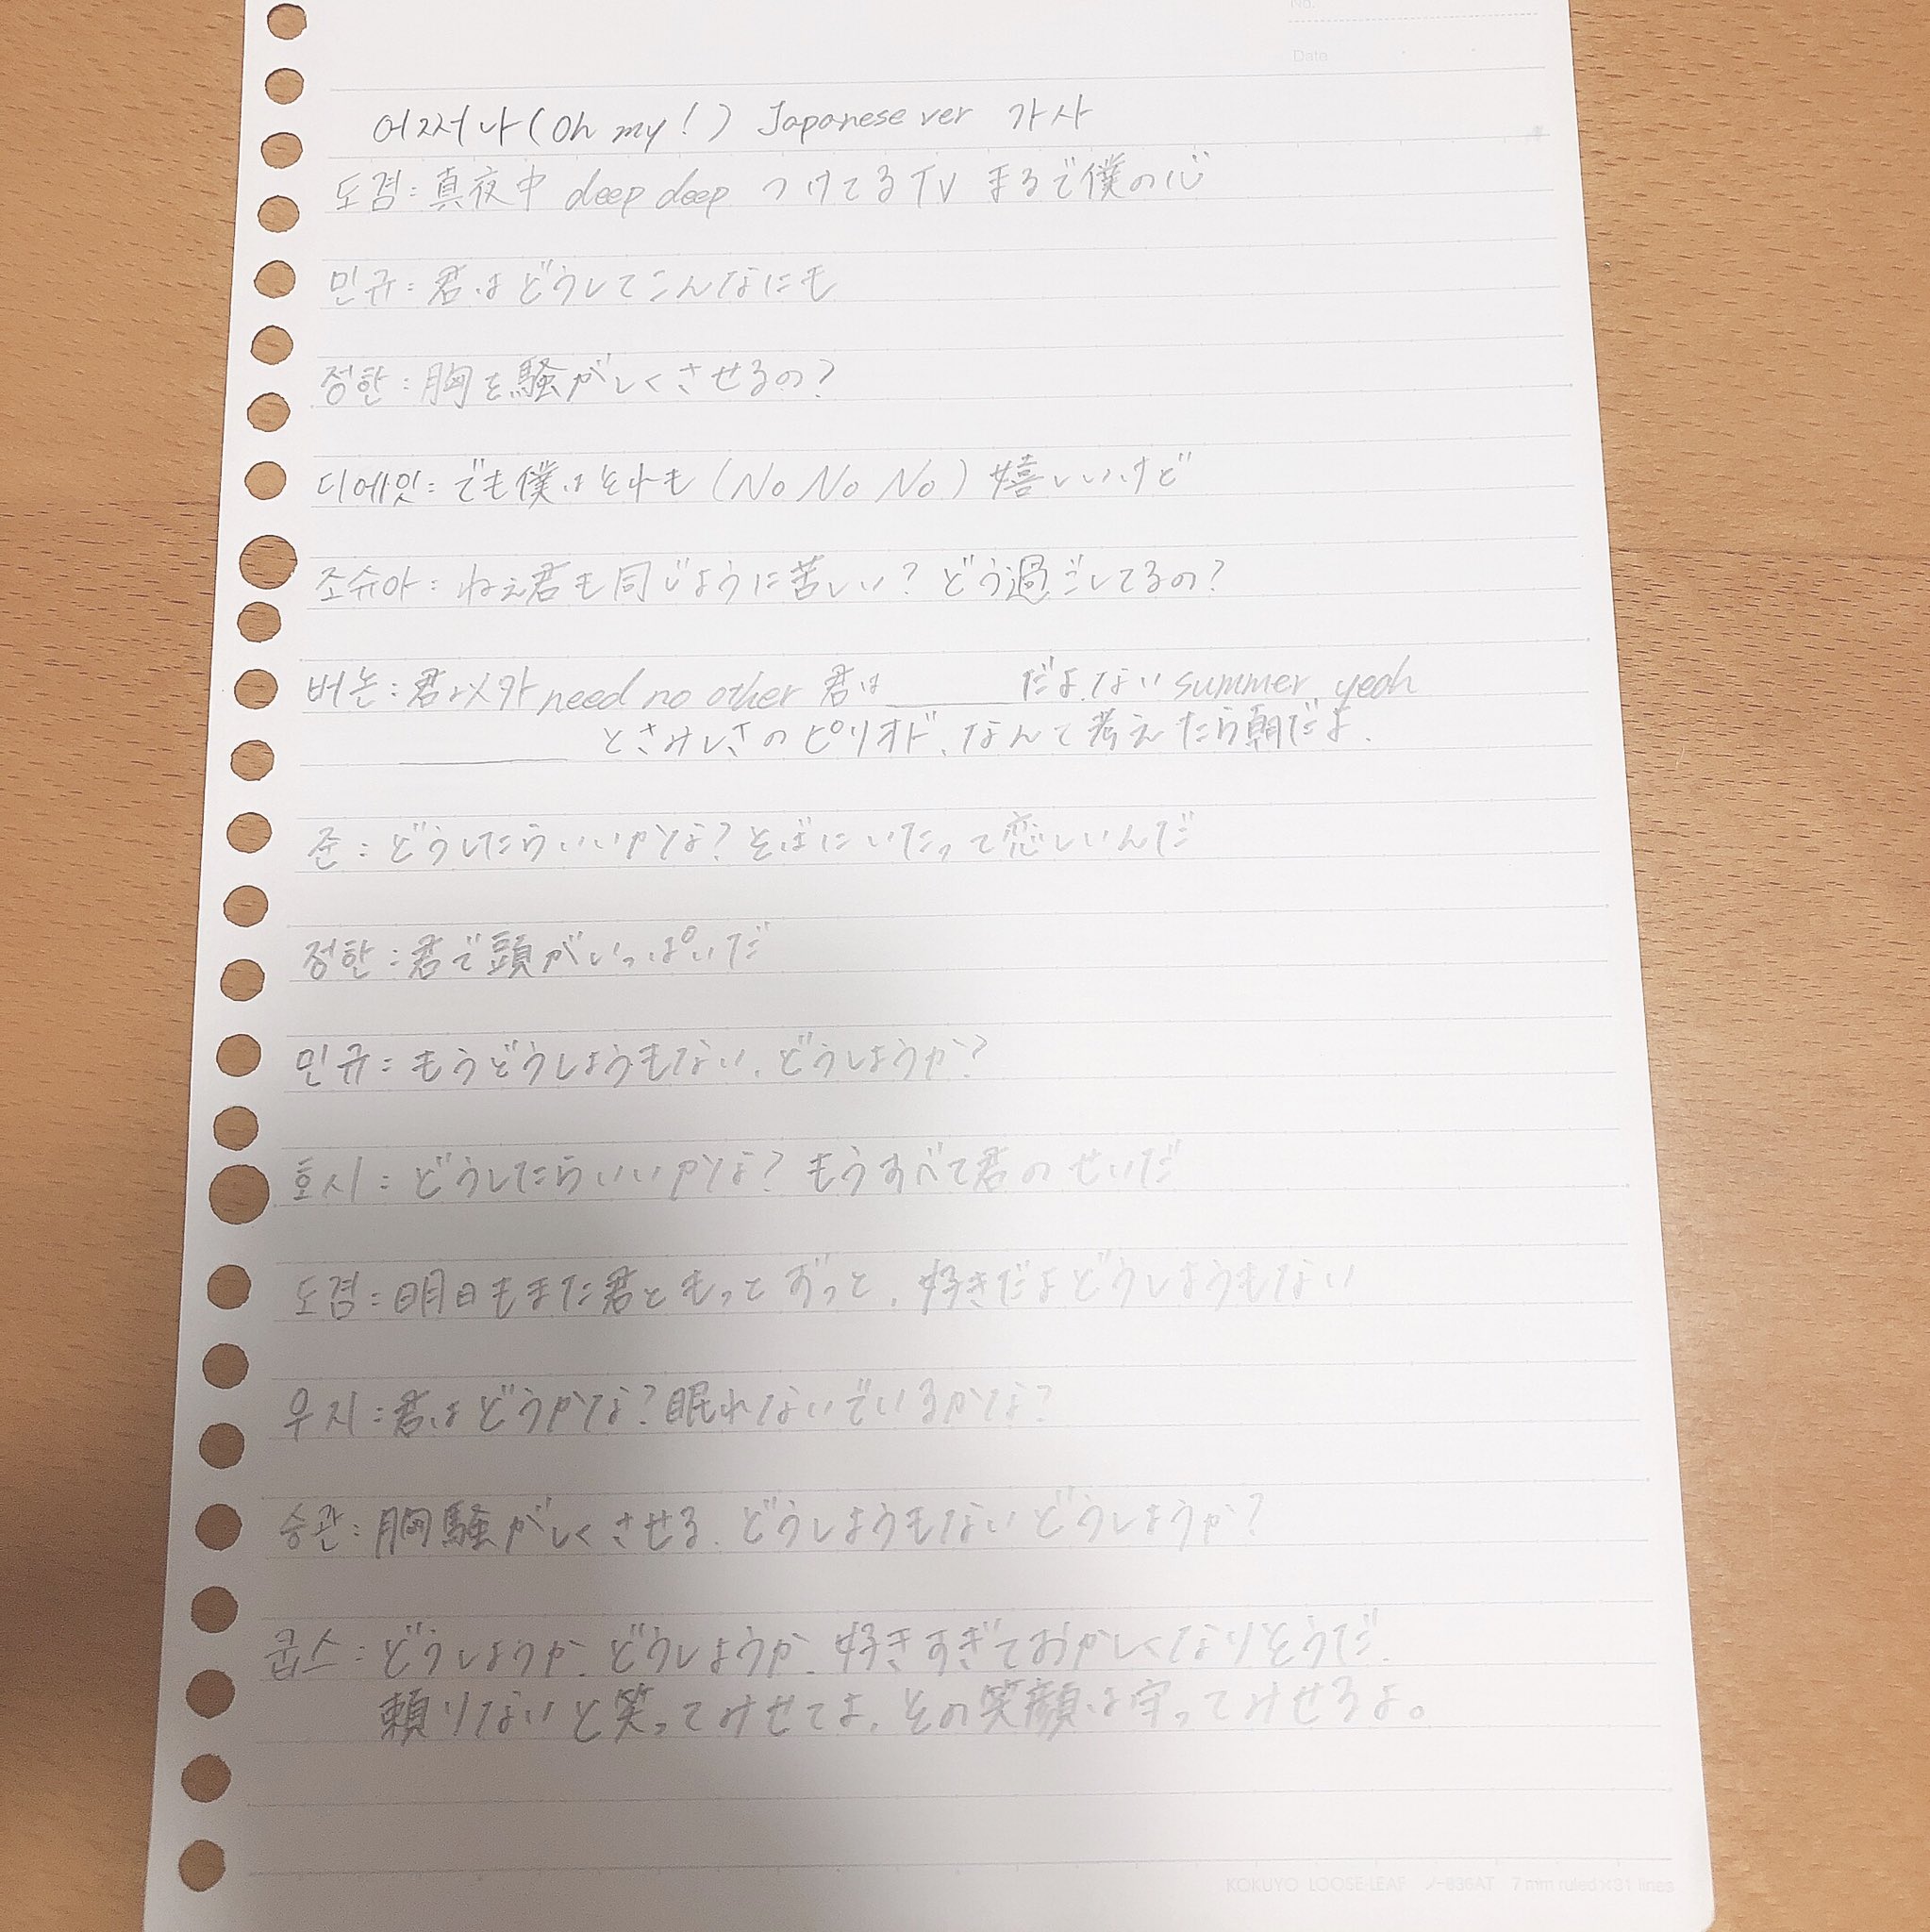 No.
Date
어쩌나 (Oh my!) Japanese ver 가사
도겸: 真夜中 deep deep つけてるTV まるで僕の心
민규: 君はどうしてこんなにも
정한: 胸を騒がしくさせるの?
디에잇: でも僕はそれも (No No No) 嬉しいけど
조슈아: ねえ君も同じように苦しい? どう過ごしてるの?
버논: 君以外 need no other 君は______だよ.ない summer, yeah
______ とさみしさのピリオド, なんて考えたら朝だよ.
준: どうしたらいいかな? そばにいたって恋しいんだ
정한: 君で頭がいっぱいだ
민규: もうどうしようもない. どうしようか?
호시: どうしたらいいかな? もうすべて君のせいだ
도겸: 明日もまた君ともっとずっと, 好きだよどうしようもない
우지: 君はどうかな? 眠れないでいるかな?
승관: 胸騒がしくさせる. どうしようもないどうしようか?
쿱스: どうしようか. どうしようか. 好きすぎておかしくなりそうだ.
頼りないと笑ってみせてよ, その笑顔は守ってみせるよ。
KOKUYO LOOSE-LEAF ノ-836AT 7 mm ruled×31 lines